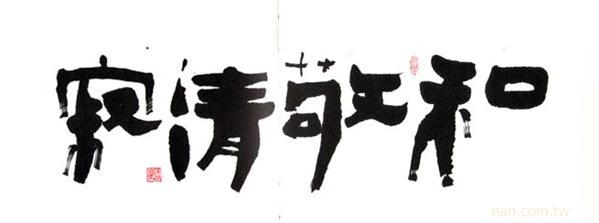 和敬清寂
nan.com.tw